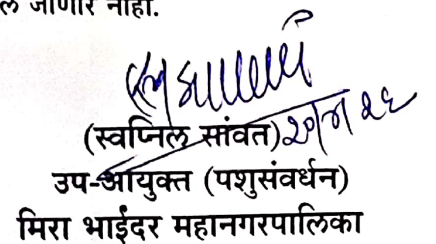 ल जाणार नाही.
(स्वप्निल सांवत)
उप-आयुक्त (पशुसंवर्धन)
मिरा भाईंदर महानगरपालिका